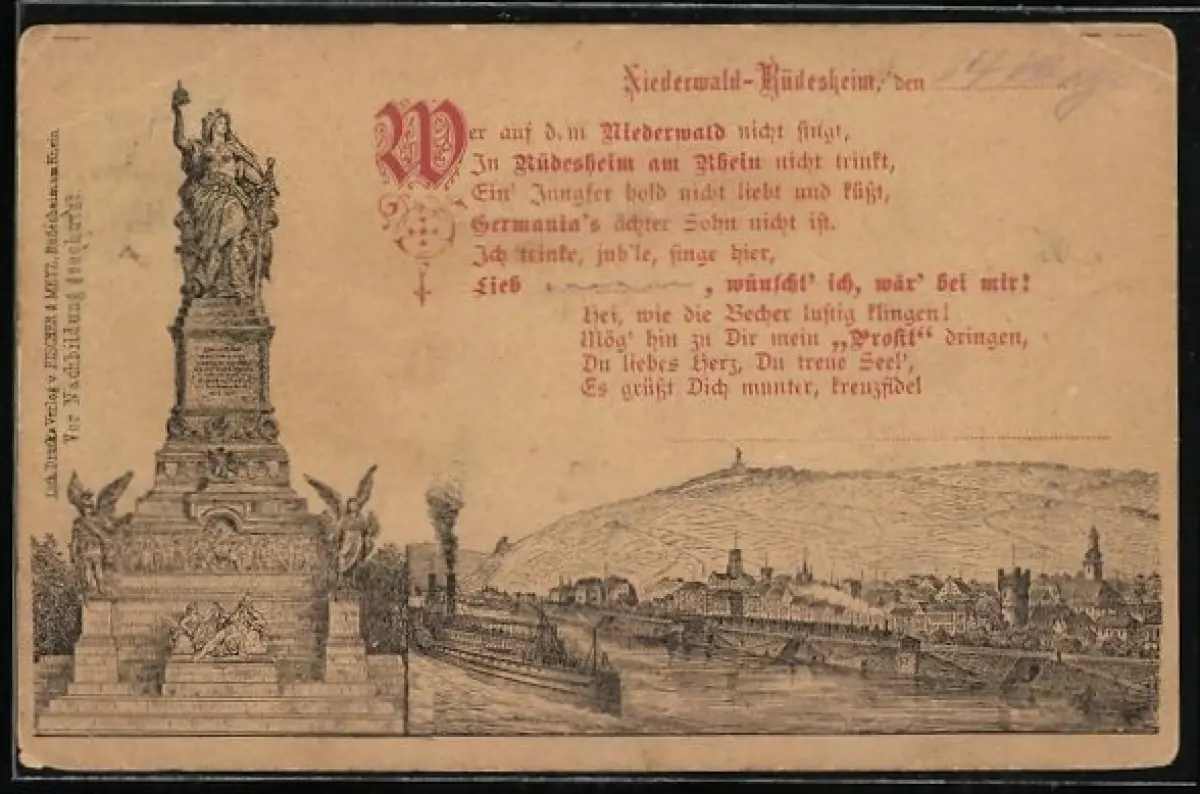 Niederwald-Rüdesheim, den
Wer auf dem Niederwald nicht singt,
In Rüdesheim am Rhein nicht trinkt,
Ein' Jungfer hold nicht liebt und küßt,
Germania's ächter Sohn nicht ist.
Ich trinke, jub'le, singe hier,
Lieb , wünscht' ich, wär' bei mir!
Hei, wie die Becher lustig klingen!
Mög' hin zu Dir mein „Prosit“ dringen,
Du liebes Herz, Du treue Seel',
Es grüßt Dich munter, kreuzfidel
Lith. Druck & Verlag v. FISCHER & METZ, Rüdesheim am Rhein.
Vor Nachbildung geschützt.